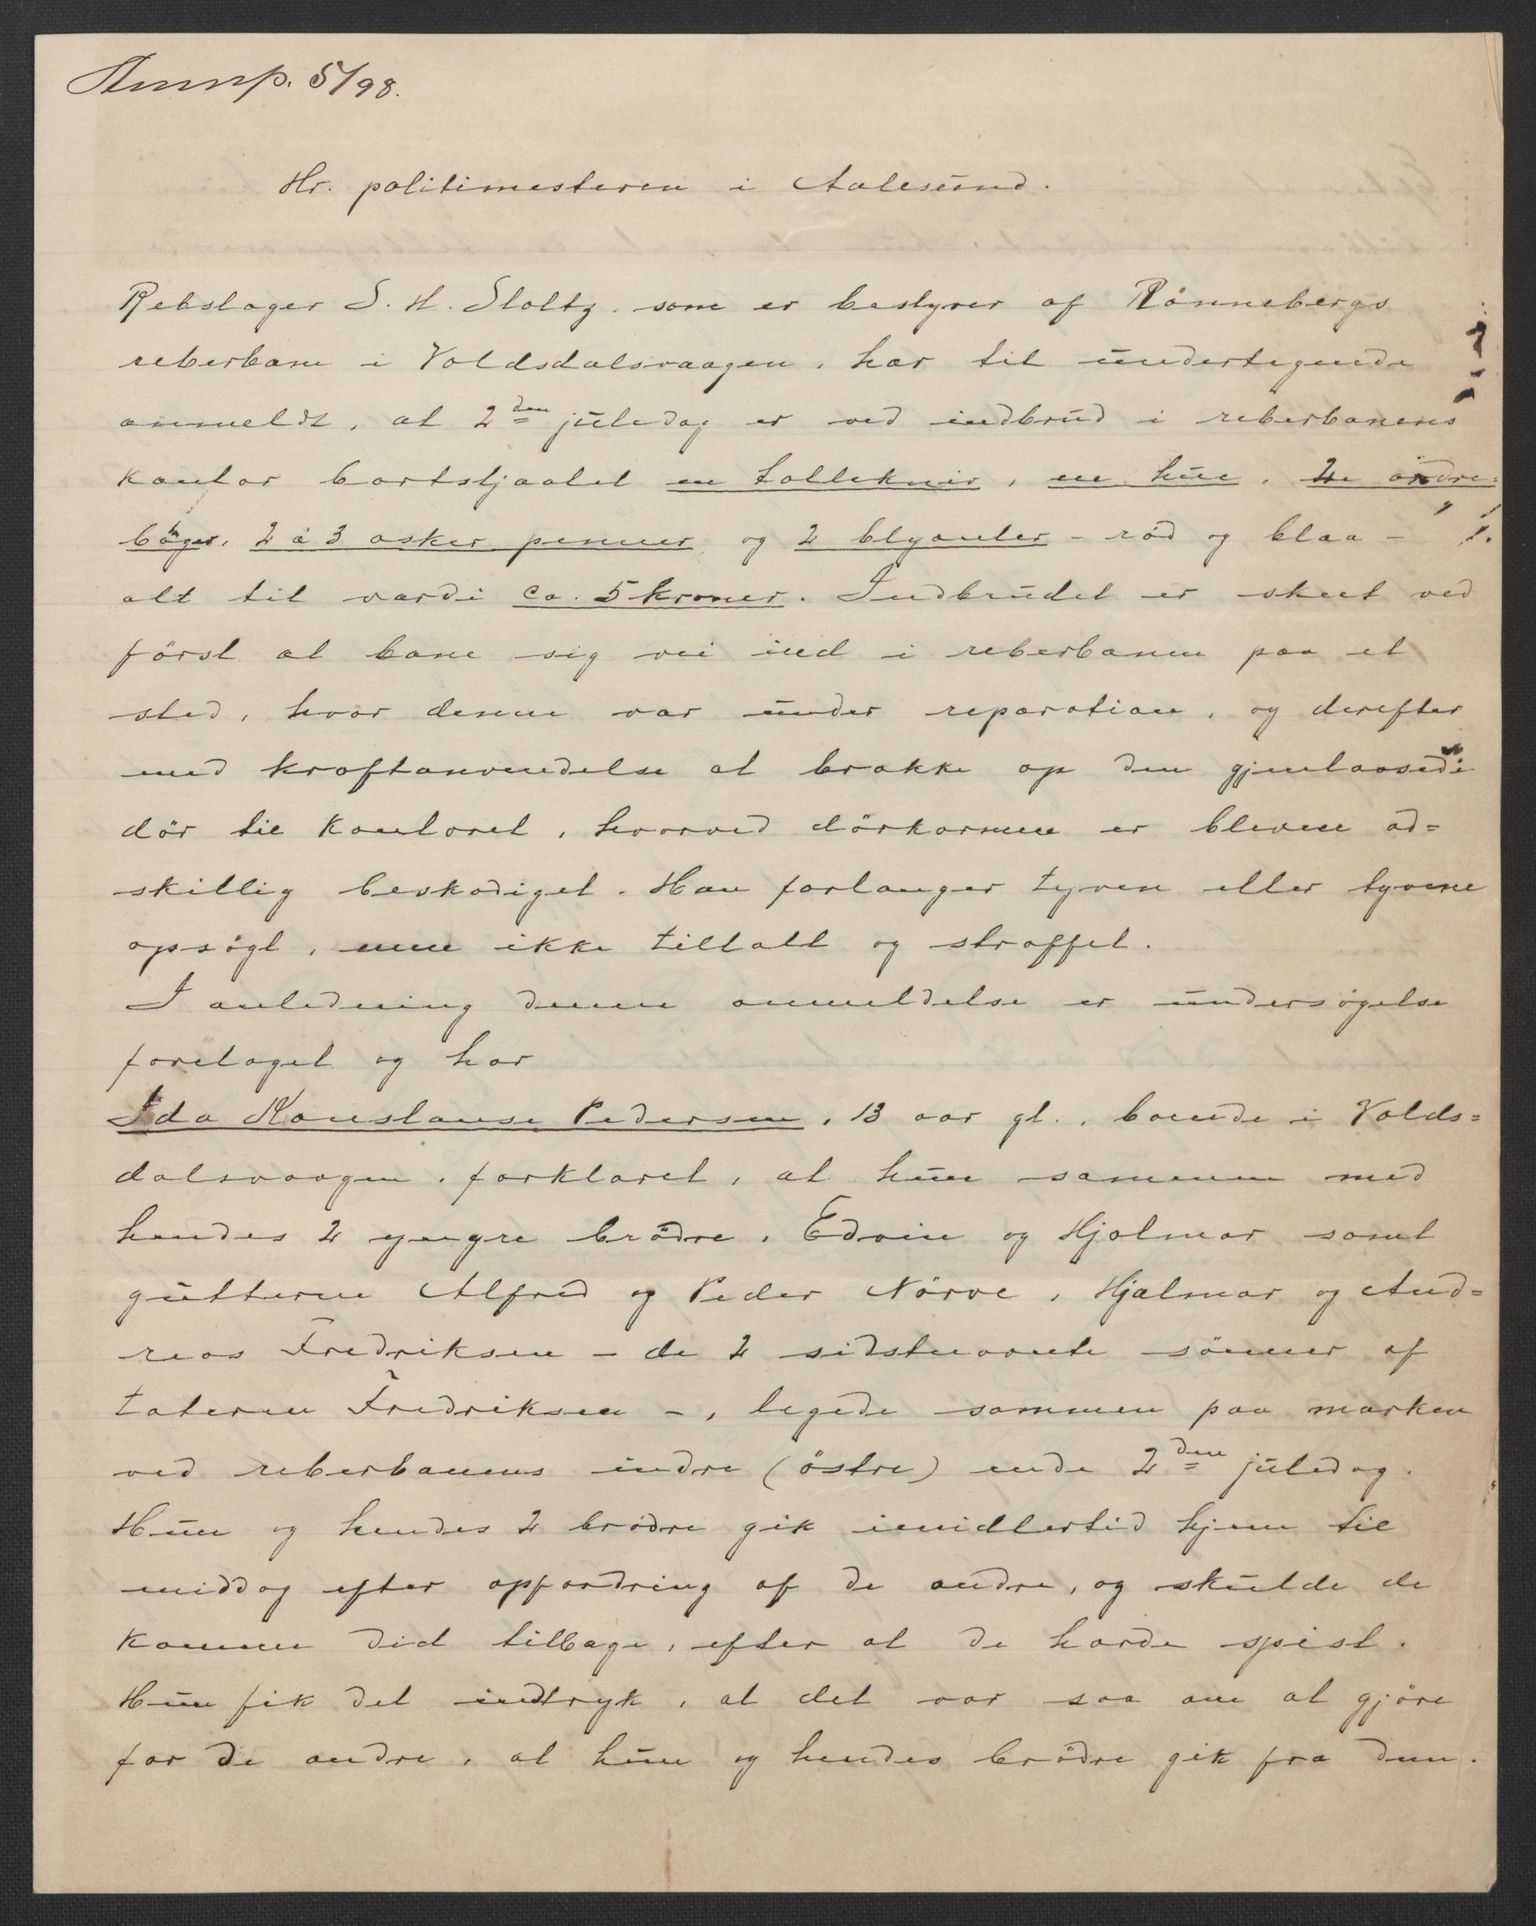 Anmp. 5/98.
Hr. politimesteren i Aalesund.
Rebslager S. H. Stoltz, som er bestyrer af Rönnebergs
reberbane i Voldsdalsvaagen, har til undertegnede
anmeldt, at 2den juledag er ved indbrud i reberbanens
kontor bortstjaalet en tollekniv, en hue, 2 ordre=
böger, 2 à 3 æsker penner og 2 blyanter - röd og blaa -
alt til værdi ca. 5 kroner. Indbrudet er skeet ved
först at bane sig vei ind i reberbanen paa et
sted, hvor denne var under reparation, og derefter
med kraftanvendelse at brække op den gjenlaasede
dör til kontoret, hvorved dörkarmen er bleven ad=
skillig beskadiget. Han forlanger tyven eller tyvene
opsögt, men ikke tiltalt og straffet.
I anledning denne anmeldelse er undersögelse
foretaget og har
Ida Konstanse Pedersen, 13 aar gl., boende i Volds=
dalsvaagen, forklaret, at hun sammen med
hendes 2 yngre brödre, Edvin og Hjalmar samt
gutterne Alfred og Peder Nörve, Hjalmar og And=
reas Fredriksen - de 2 sidstnævnte sönner af
tateren Fredriksen -, legede sammen paa marken
ved reberbanens indre (östre) ende 2den juledag.
Hun og hendes 2 brödre gik imidlertid hjem til
middag efter opfordring af de andre, og skulde de
komme did tilbage, efter at de havde spist.
Hun fik det indtryk, at det var saa om at gjöre
for de andre, at hun og hendes brödre gik fra dem.